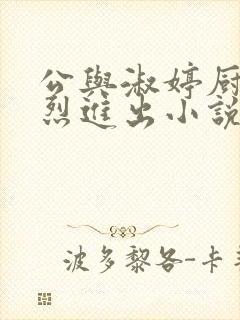 公與淑婷厨
烈進出小說
波多黎各-卡